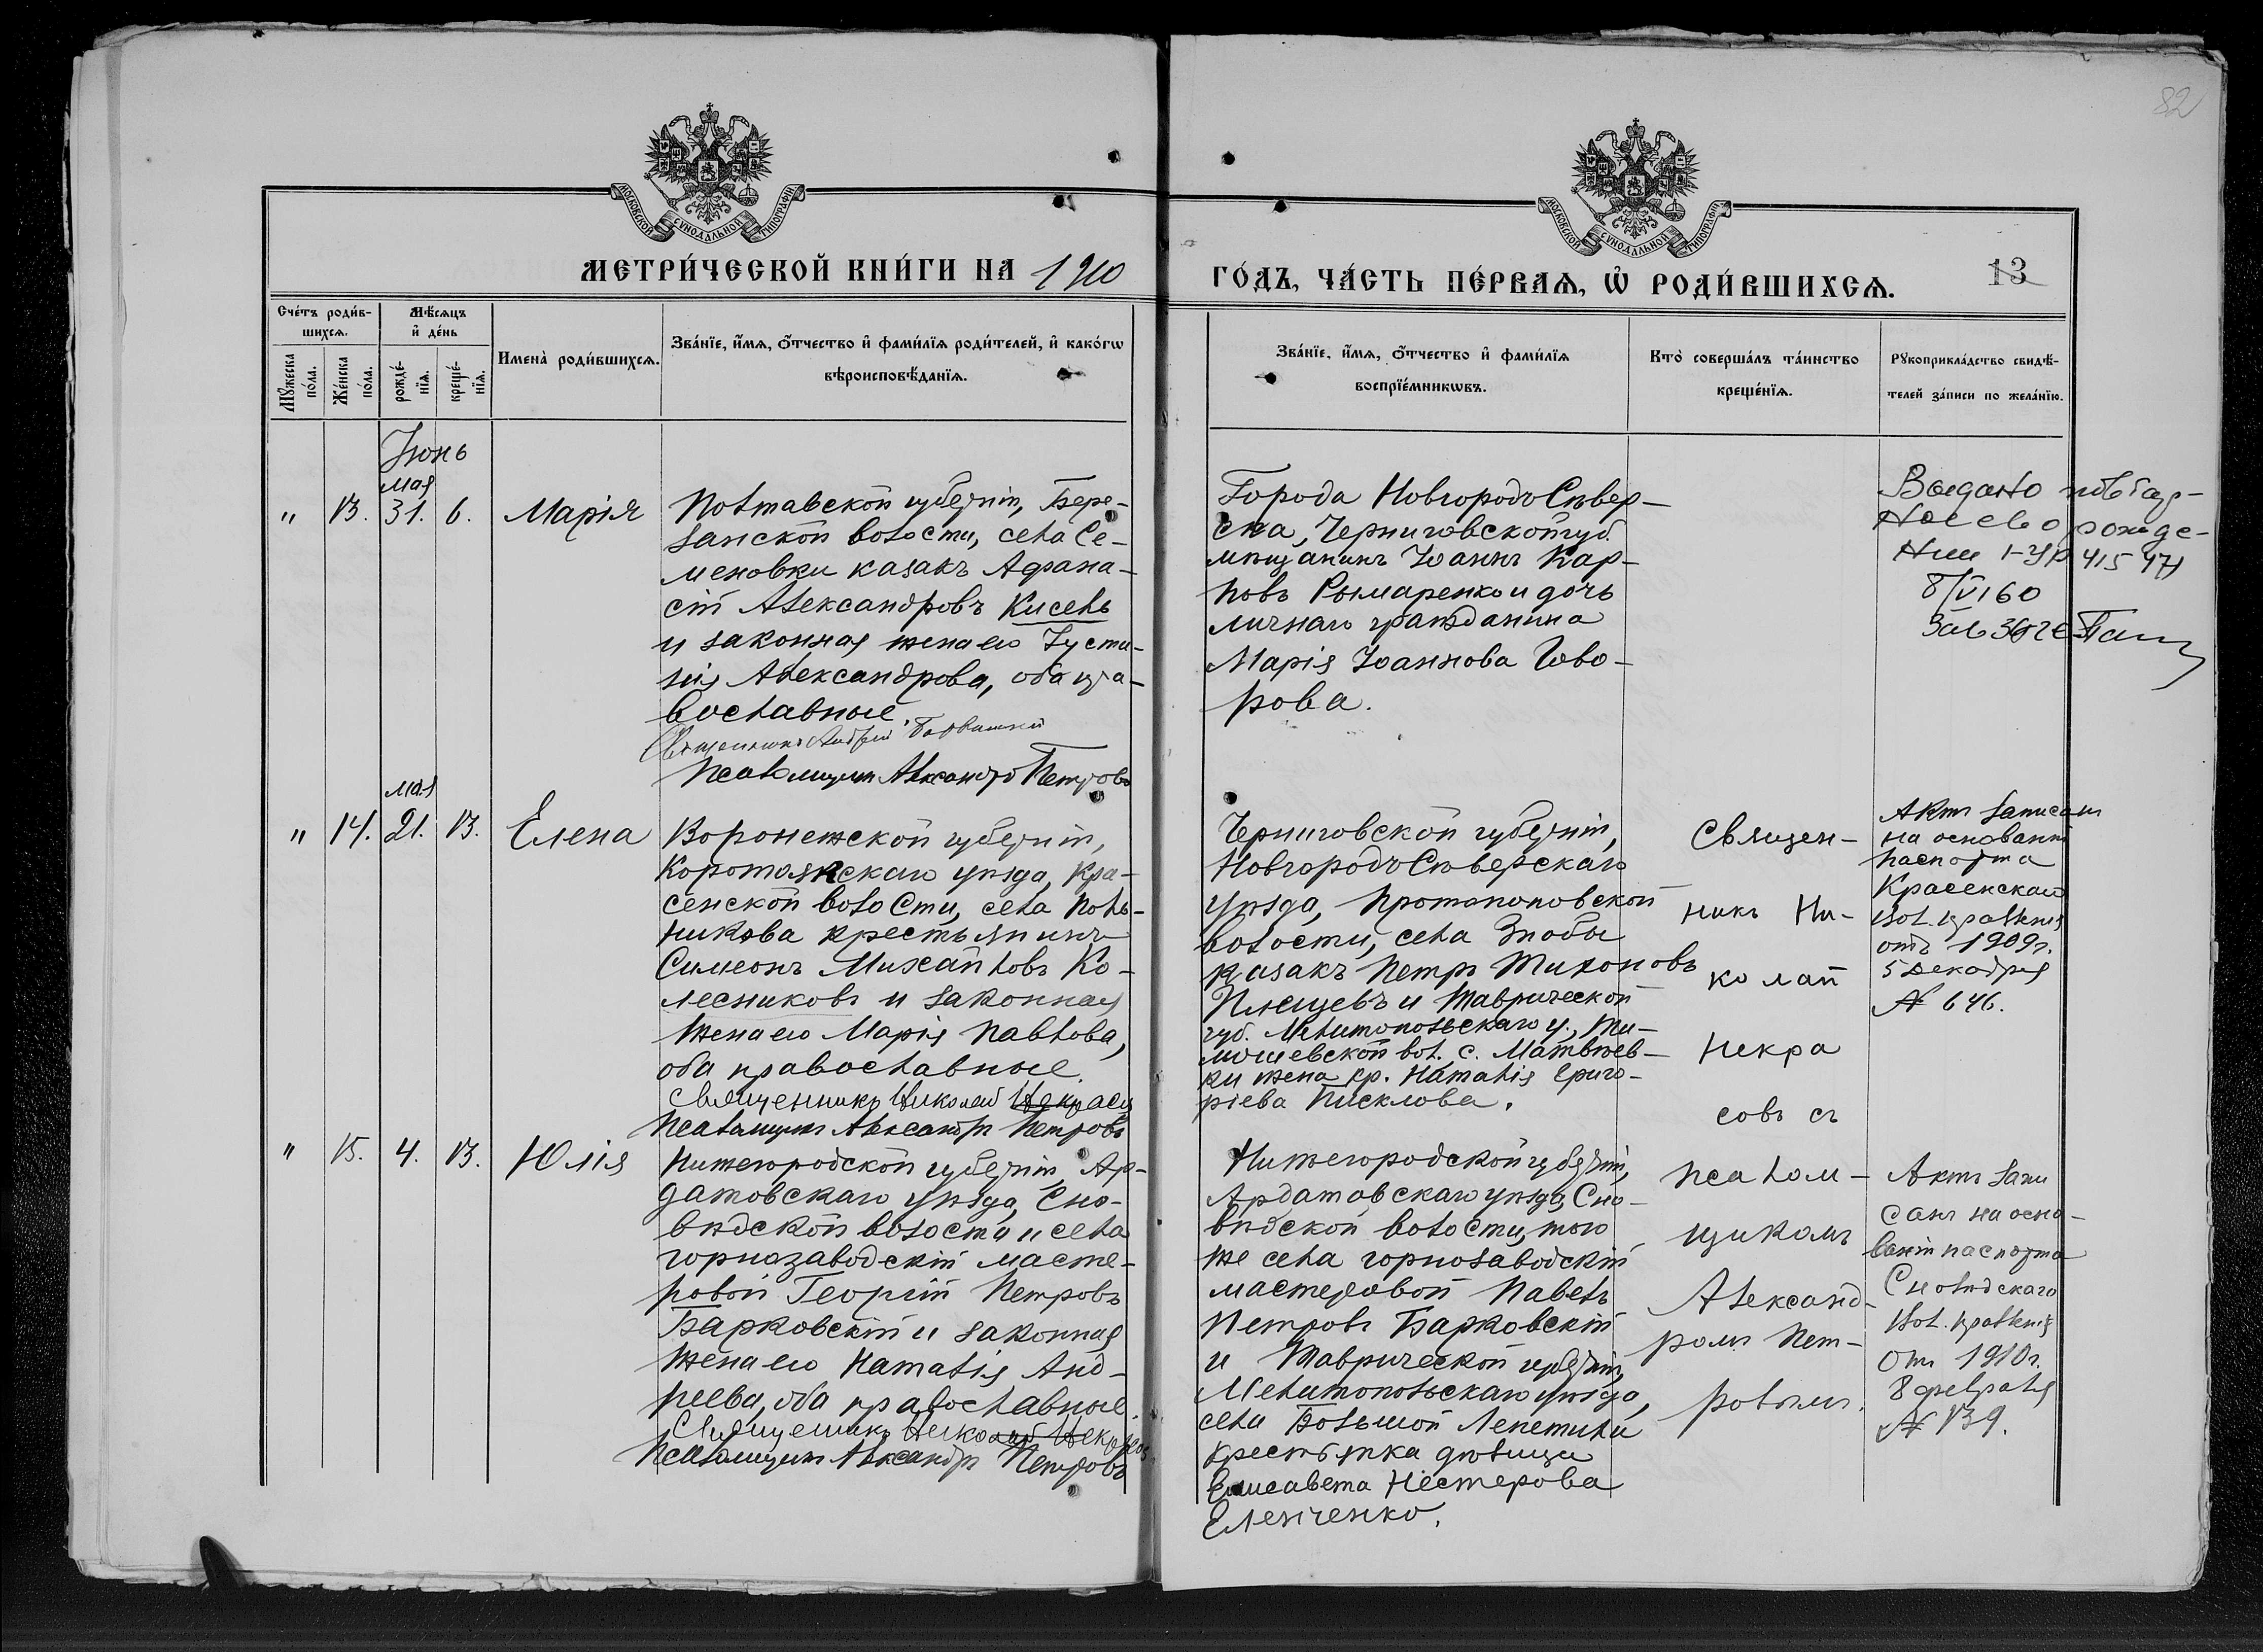 82
МОСКОВСКОЙ СѴНОДАЛЬНОЙ ТИПОГРАФІИ
МОСКОВСКОЙ СѴНОДАЛЬНОЙ ТИПОГРАФІИ
МЕТРИ́ЧЕСКОЙ КНИ́ГИ НА 1910
ГО́ДЪ, ЧА́СТЬ ПЕ́РВАѦ, Ѡ҆ РОДИ́ВШИХСѦ.
13
Сче́тъ роди́в-
шихсѧ.
Мꙋ́жеска по́ла.
Же́нска по́ла.
Мѣ́сѧцъ
и҆ де́нь
рожде́-
нїѧ.
креще́-
нїѧ.
Имена̀ роди́вшихсѧ.
Зва́нїе, и҆́мѧ, ѻ҆́тчество и҆ фами́лїѧ роди́телей, и҆ како́гѡ
вѣроисповѣ́данїѧ.
Зва́нїе, и҆́мѧ, ѻ҆́тчество и҆ фами́лїѧ
воспрїе́мникѡвъ.
Кто̀ соверша́лъ та́инство
креще́нїѧ.
Рꙋкоприкла́дство свидѣ́-
телей за́писи по жела́нїю.
Іюнь
мая
" 13. 31. 6. Марія
Полтавской губерніи, Бере-
занской волости, села Се-
меновки казакъ Афана-
сій Александровъ Кисель
и законная жена его Іусти-
нія Александрова, оба пра-
вославные.
Священникъ Андрей
Псаломщикъ Александръ Петровъ
Города Новгородъ Сѣвер-
ска, Черниговской губ.
мѣщанинъ Іоаннъ Кар-
повъ Рымаренко и дочь
личнаго гражданина
Марія Іоаннова Гово-
рова.
Видано повтор-
не св о рожде-
нии 1-УР 415471
8/VI 60
мая
" 14. 21. 13. Елена
Воронежской губерніи,
Коротоякскаго уѣзда, Кра-
сенской волости, села Поль-
никова крестьянинъ
Симеонъ Михайловъ Ко-
лесниковъ и законная
жена его Марія Павлова,
оба православные.
Священникъ Николай Некрасов
Псаломщикъ Александръ Петровъ
Черниговской губерніи,
Новгородъ Сѣверскаго
уѣзда, Протопоповской
волости, села Знобы
казакъ Петръ Тихоновъ
Плющевъ и Таврической
губ. Мелитопольскаго у., Ти-
мошевской вол. с. Матвѣев-
ки жена кр. Наталія Григо-
ріева Писклова.
Священ-
никъ Ни-
колай
Некра
совъ съ
псалом-
щикомъ
Александ-
ромъ Пет-
ровымъ.
Актъ записанъ
на основаніи
паспорта
Красенскаго
вол. правленія
отъ 1909 г.
5 декабря
№ 646.
" 15. 4. 13. Юлія
Нижегородской губерніи, Ар-
датовскаго уѣзда, Сно-
вѣдской волости и села
горнозаводскій масте-
ровой Георгій Петровъ
Барковскій и законная
жена его Наталія Анд-
реева, оба православные.
Священникъ Николай Некрасов
Псаломщикъ Александръ Петровъ
Нижегородской губерніи,
Ардатовскаго уѣзда, Сно-
вѣдской волости, того
же села горнозаводскій
мастеровой Павелъ
Петровъ Барковскій
и Таврической губерніи,
Мелитопольскаго уѣзда,
села Большой Лепетихи
крестьянка дѣвица
Елисавета Нестерова
Еленченко.
Актъ запи
санъ на осно-
ваніи паспорта
Сновѣдскаго
вол. правленія
отъ 1910 г.
8 февраля
№ 139.